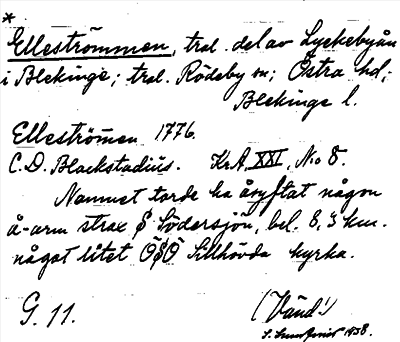 *
Elleströmmen, trol. del av Lyckebyån
i Blekinge; trol. Rödeby sn; Östra hd;
Blekinge l.
Elleströmen 1776.
C. D. Blackstadius. KrA XXI, No 8.
Namnet torde ha åsyftat någon
å-arm strax S Södersjön, bel. 8,3 km.
något litet ÖSÖ Sillhövda kyrka.
G. 11. (Vänd!)
1938.